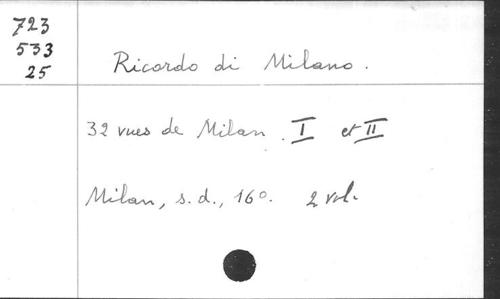 723
533
25
Ricordo di Milano.
32 vues de Milan. I et II
Milan, s.d., 16º. 2 vol.